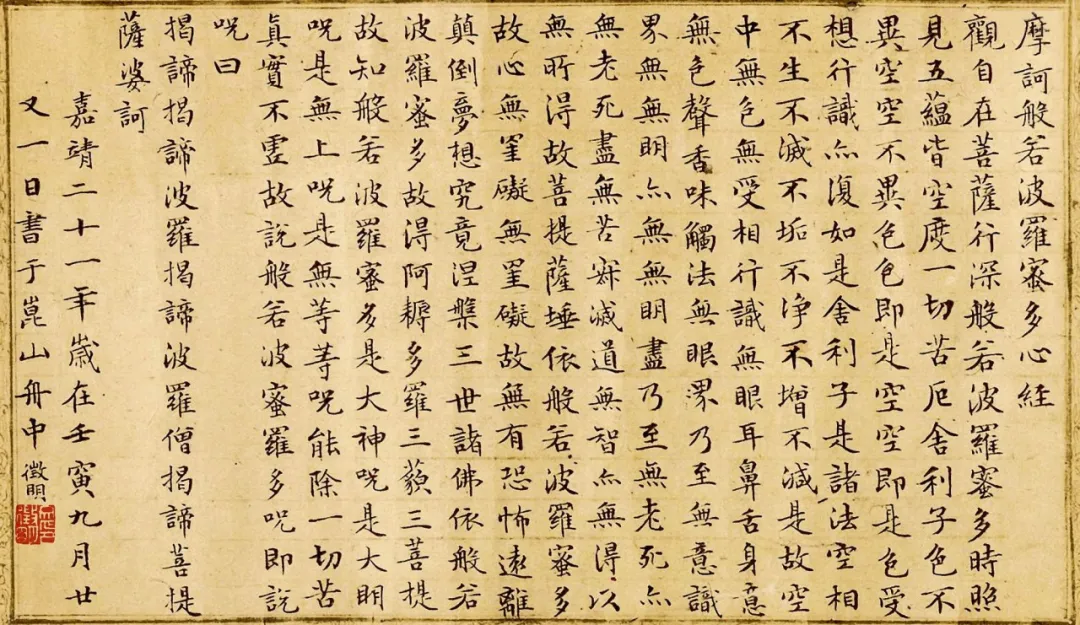 摩訶般若波羅蜜多心経
觀自在菩薩行深般若波羅蜜多時照
見五蘊皆空度一切苦厄舍利子色不
異空空不異色色即是空空即是色受
想行識亦復如是舍利子是諸法空相
不生不滅不垢不淨不增不減是故空
中無色無受相行識無眼耳鼻舌身意
無色聲香味觸法無眼界乃至無意識
界無無明亦無無明盡乃至無老死亦
無老死盡無苦寂滅道無智亦無得以
無所得故菩提薩埵依般若波羅蜜多
故心無罣礙無罣礙故無有恐怖遠離
顛倒夢想究竟涅槃三世諸佛依般若
波羅蜜多故得阿耨多羅三藐三菩提
故知般若波羅蜜多是大神呪是大明
呪是無上呪是無等等呪能除一切苦
真實不虛故說般若波蜜羅多呪即說
呪曰
揭諦揭諦波羅揭諦波羅僧揭諦菩提
薩婆訶
嘉靖二十一年歲在壬寅九月廿
又一日書于崑山舟中 徵明